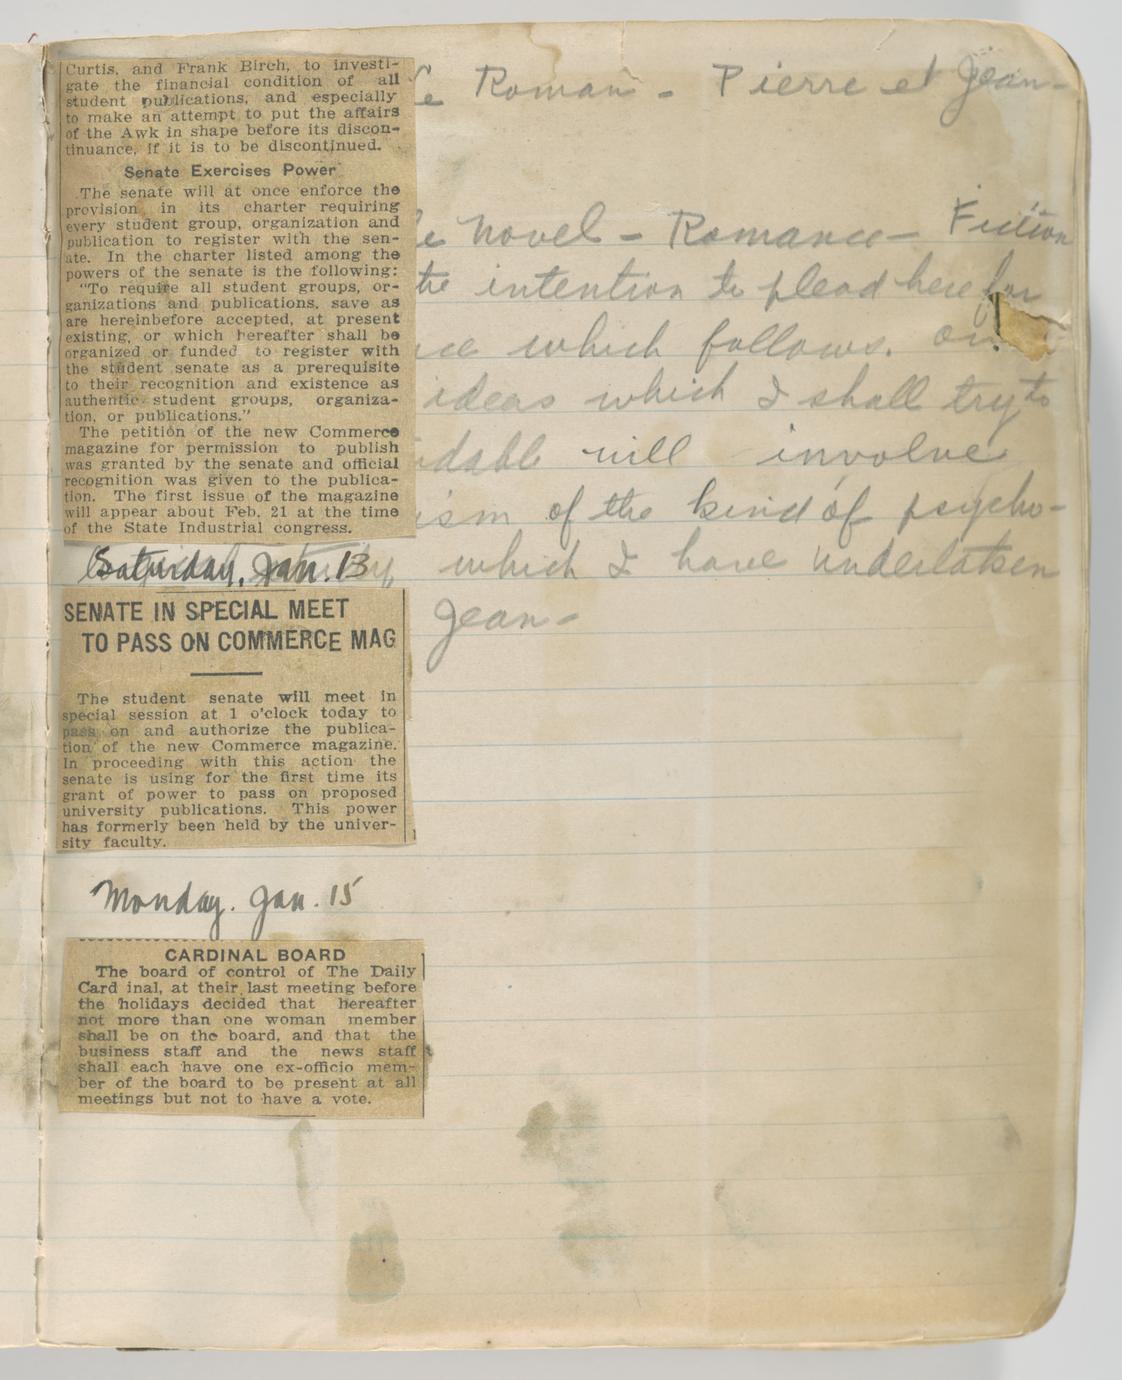 Curtis, and Frank Birch, to investi-
gate the financial condition of all
student publications, and especially
to make an attempt to put the affairs
of the Awk in shape before its discon-
tinuance, if it is to be discontinued.
Senate Exercises Power
The senate will at once enforce the
provision in its charter requiring
every student group, organization and
publication to register with the sen-
ate. In the charter listed among the
powers of the senate is the following:
"To require all student groups, or-
ganizations and publications, save as
are hereinbefore accepted, at present
existing, or which hereafter shall be
organized or funded to register with
the student senate as a prerequisite
to their recognition and existence as
authentic student groups, organiza-
tion, or publications."
The petition of the new Commerce
magazine for permission to publish
was granted by the senate and official
recognition was given to the publica-
tion. The first issue of the magazine
will appear about Feb. 21 at the time
of the State Industrial congress.
Saturday, Jan. 13
SENATE IN SPECIAL MEET
TO PASS ON COMMERCE MAG
The student senate will meet in
special session at 1 o'clock today to
pass on and authorize the publica-
tion of the new Commerce magazine.
In proceeding with this action the
senate is using for the first time its
grant of power to pass on proposed
university publications. This power
has formerly been held by the univer-
sity faculty.
Monday. Jan. 15
CARDINAL BOARD
The board of control of The Daily
Card inal, at their last meeting before
the holidays decided that hereafter
not more than one woman member
shall be on the board, and that the
business staff and the news staff
shall each have one ex-officio mem-
ber of the board to be present at all
meetings but not to have a vote.
Le Roman - Pierre et Jean-
Novel - Romance - Fiction
the intention to plead here for
which follows. On
ideas which I shall try to
will involve
ism of the kind of psycho-
which I have undertaken
Jean-